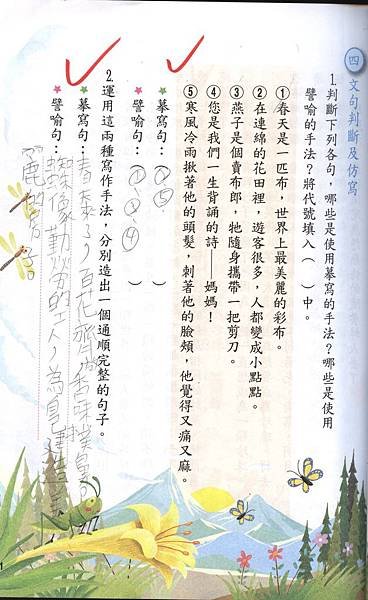 四 文句判斷及仿寫
1.判斷下列各句,哪些是使用摹寫的手法?哪些是使用
譬喻的手法?將代號填入( )中。
①春天是一匹布,世界上最美麗的彩布。
②在連綿的花田裡,遊客很多,人都變成小點點。
③燕子是個賣布郎,牠隨身攜帶一把剪刀。
④您是我們一生背誦的詩——媽媽!
⑤寒風冷雨揪著他的頭髮,刺著他的臉頰,他覺得又痛又麻。
★摹寫句:(②⑤)
★譬喻句:(①③④)
2.運用這兩種寫作手法,分別造出一個通順完整的句子。
★摹寫句:春天來了,百花齊放,香味撲鼻。
★譬喻句:像勤勞的工人,為自己建造美
麗的房子。